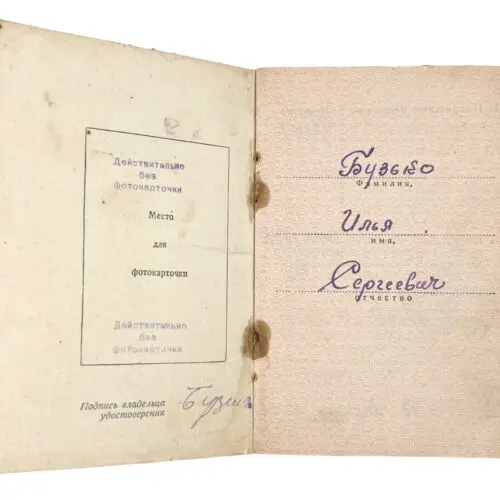 Действительно
без
фотокарточки
Место
для
фотокарточки
Действительно
без
фотокарточки
Подпись владельца
удостоверения
Бузько
фамилия,
Илья
имя,
Сергеевич
отчество